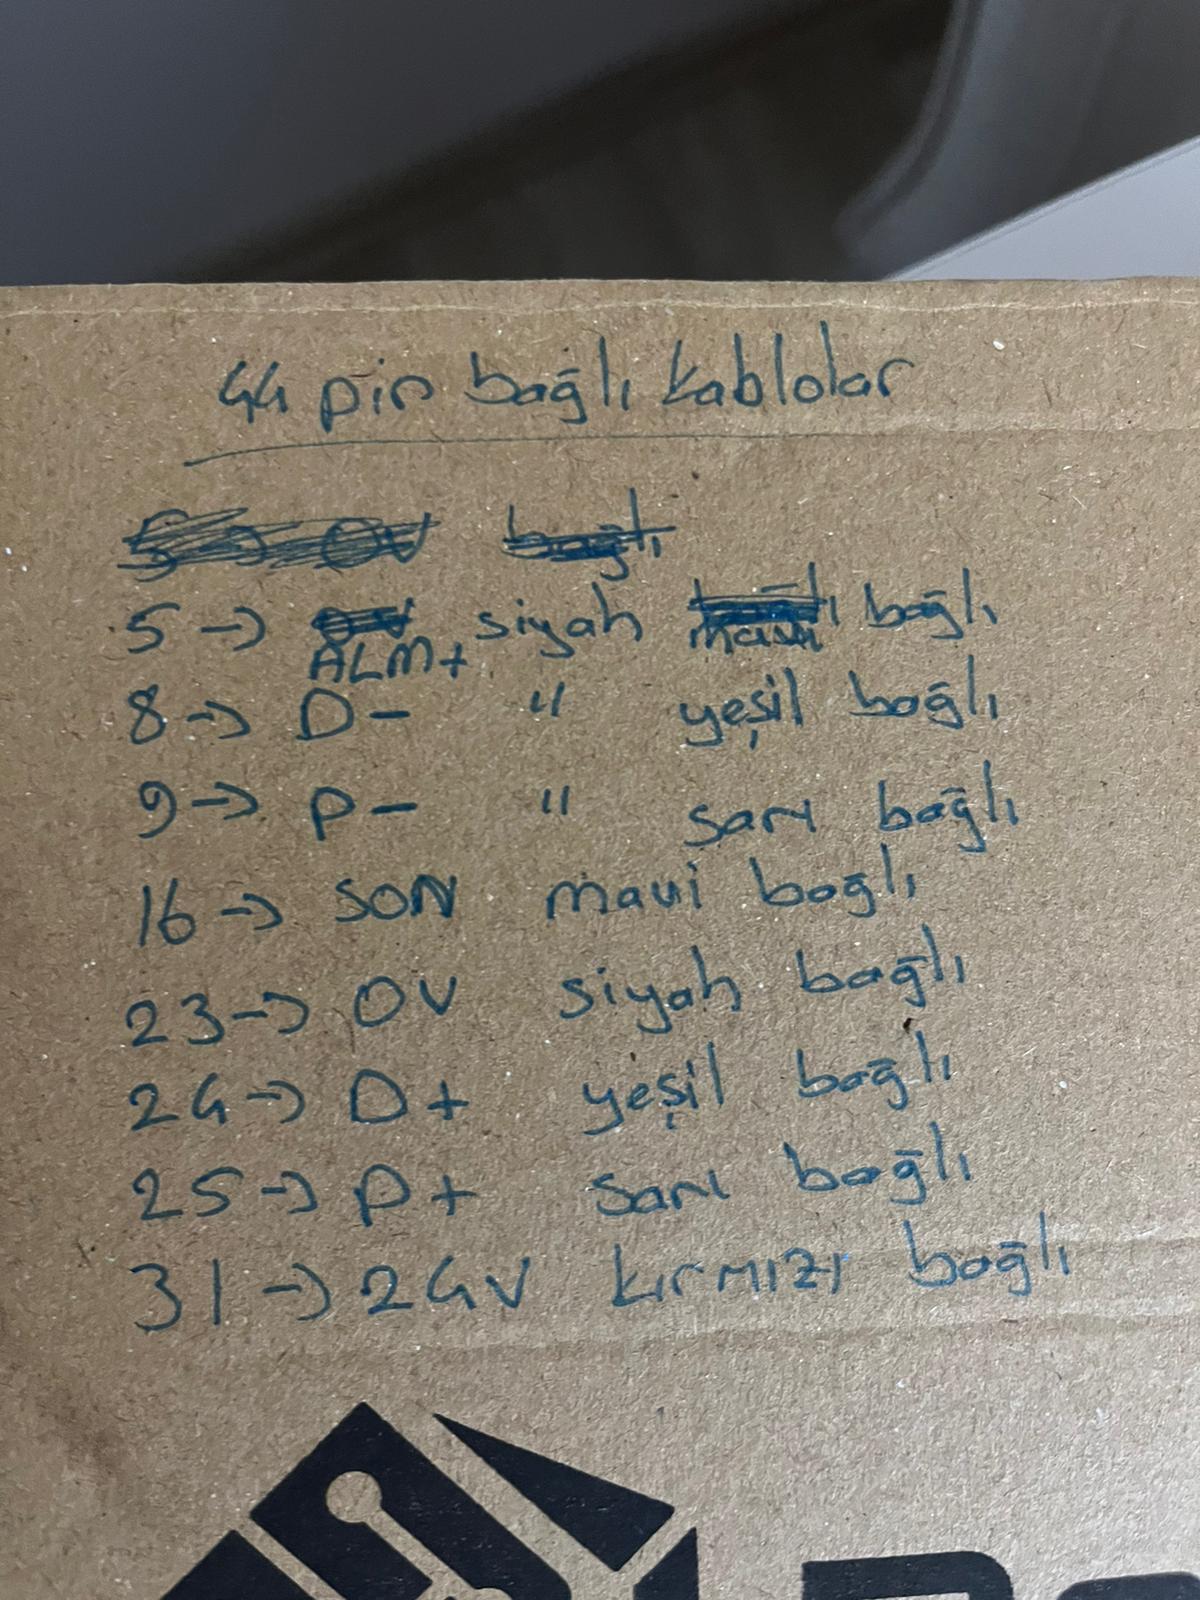 44 pin bağlı kablolar
5 → siyah bağlı
ALM+ mavi
8 → D- " yeşil bağlı
9 → P- " sarı bağlı
16 → SON mavi bağlı
23 → OV siyah bağlı
24 → D+ yeşil bağlı
25 → P+ sarı bağlı
31 → 24V kırmızı bağlı